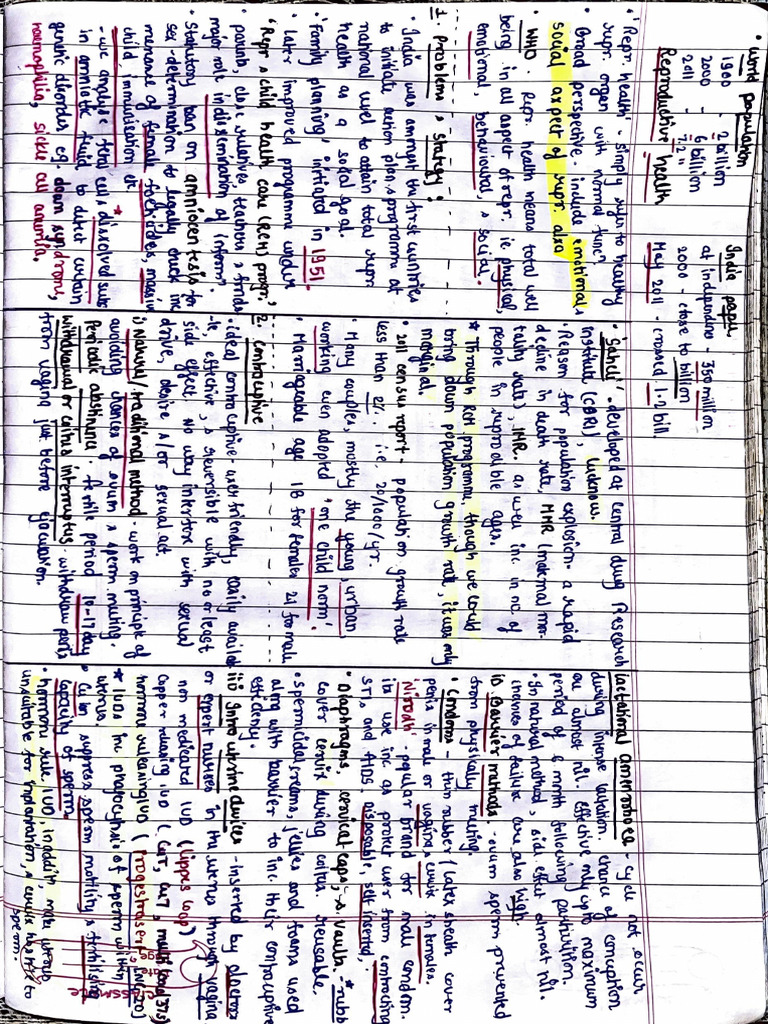 • World population
1900 - 2 billion
2000 - 6 billion
2011 - 7.2 "
India popu
at independence - 350 million
2000 - close to billion
May 2011 - crossed 1.2 bill.
Reproductive health
• 'Repr. health' - simply refer to healthy
repr. organ with normal func"
• Broad perspective - include emotional &
social aspect of repr. also
• WHO - Repr. health means total well
being in all aspect of repr. ie physical,
emotional, behavioural, & social.
1. Problems & stategy:
• India was amongst the first countries
to initiate action plan & programme at
national level to attain total repr.
health as a social goal.
• 'Family planning' initiated in 1951.
• Later improved programme under
'Repr. & child health care (RCH) progr.'
• parents, close relatives, teachers & friends
major role in dissemination of inform"
• Statutory ban on amniocentesis for
sex-determination to legally check inc
menance of female foeticides, massive
child immunisation etc
- we analyse fetal cells & dissolved subs
in amniotic fluid to detect certain
genetic disorders eg down syndrome,
haemophilia, sickle cell anaemia.
• 'Saheli' - developed at central drug Research
Institute (CDRI), Lucknow.
• Reason for population explosion - a rapid
decline in death rate, MMR (maternal mor-
tality rate), IMR. as well inc. in no. of
people in reproducible ages.
* Through RCH programme, though we could
bring down population growth rate, it was only
marginal.
• 2011 census report - population growth rate
less than 2%. i.e. 20/1000/yr.
• Many couples, mostly the young, urban
working even adopted 'one child norm'.
• Marriageable age 18 for females 21 for male
2. Contraceptive
• ideal contraceptive - user friendly, easily availab
-le, effective, & reversible with no or least
side effect. No way interfere with sexual
drive, desire &/or sexual act.
i) Natural/traditional method - work on principle of
avoiding chances of ovum & sperm meeting.
Periodic abstinence - fertile period 10-17 day
withdrawal or coitus interruptus - withdraw penis
from vagina just before ejaculation.
lactational ammenorhoea - cycle not occur
during intense lactation. chance of conception
are almost nil. effective only upto maximum
period of 6 month following parturition.
• In natural method, side effect almost nil.
chances of failure are also high.
ii) Barrier methods - ovum sperm prevented
from physically meeting.
• Condoms - thin rubber/latex sheath cover
penis in male or vagina & cervix in females.
'Nirodh' - popular brand for male condom.
its use inc as protect user from contracting
STIs and AIDS. disposable, self inserted,
• Diaphragms, cervical caps, & vault - * rubb
cover cervix during coitus. reuseable.
• spermicidal creams, jellies and foams used
along with barrier to inc. their contraceptive
efficiency.
iii) Intra uterine devices - inserted by doctors
or expert nurses in the uterus through vagina
non medicated IUD (lippes loop)
copper releasing IUD (CuT, Cu7, multiload 375)
hormone releasing IUD (Progestasert, LNG-20)
* IUDs inc phagocytosis of sperm within
uterus.
• Cu ion suppress sperm motility & fertilising
capacity of sperm.
• hormone rele. IUD, in addn make uterus
unsuitable for implantation, & cervix hostile to
sperm.
classmate
Date
Page